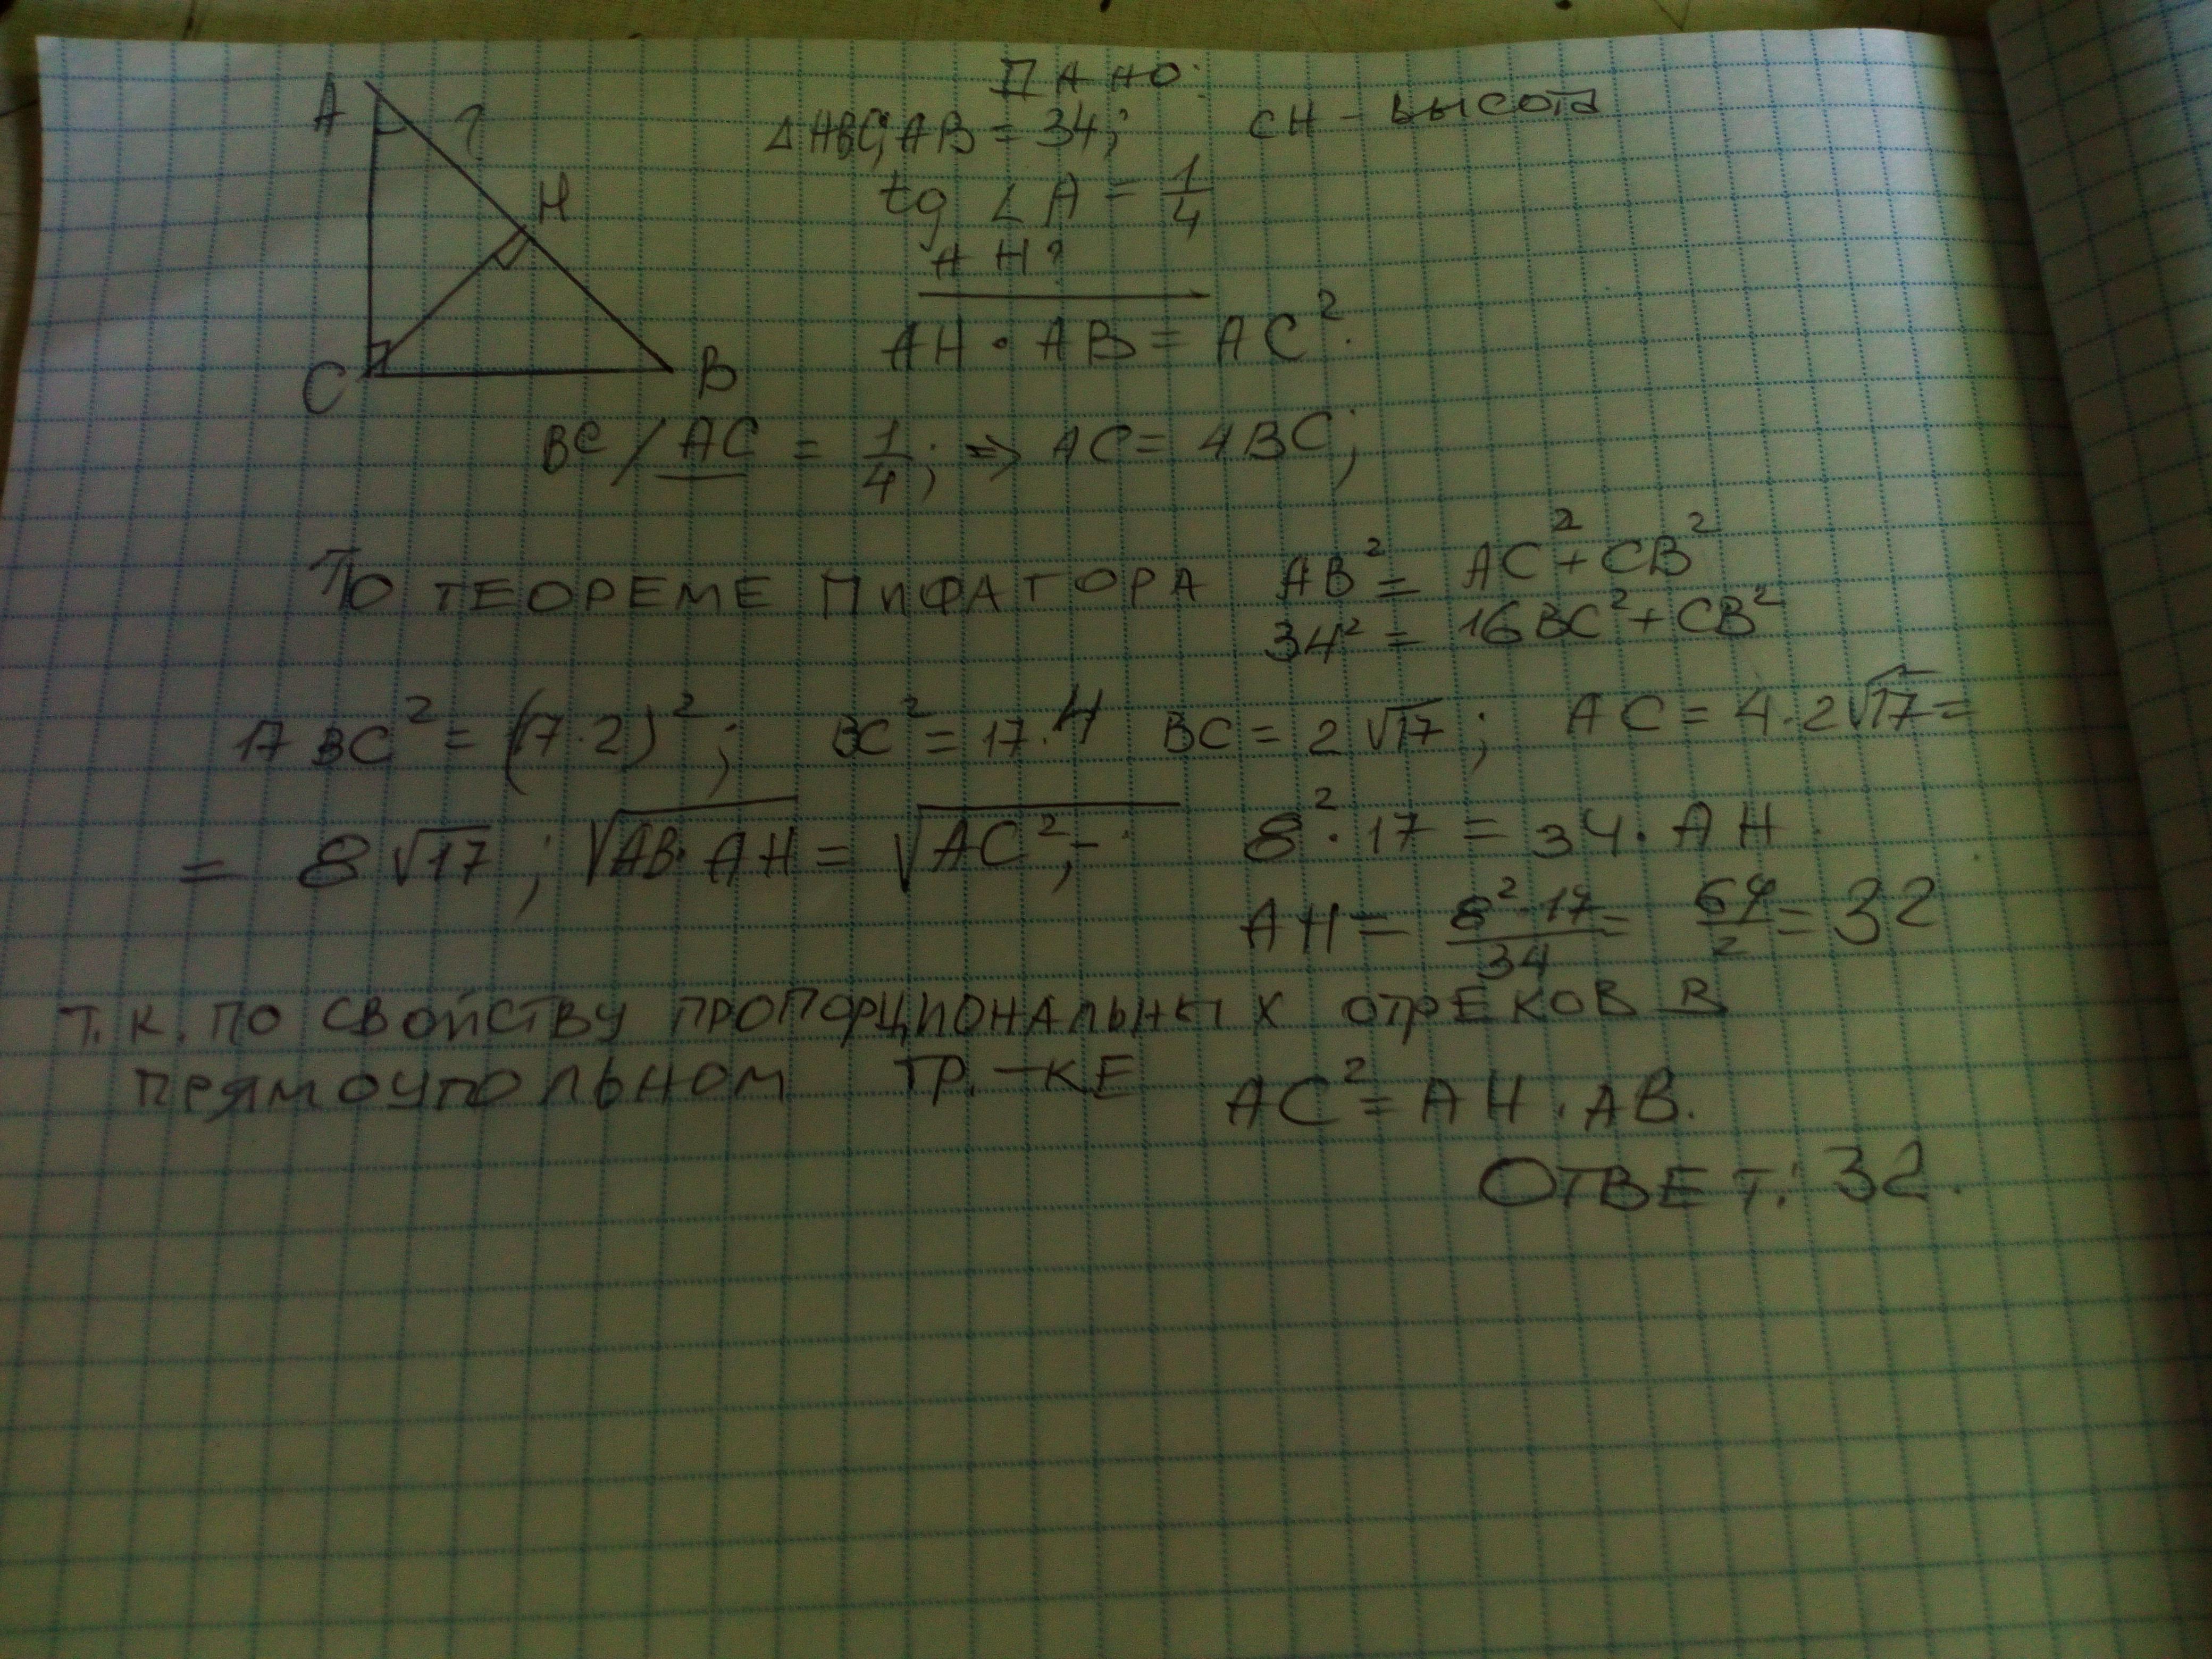 Дано:
A ? H C B
△ABC; AB = 34; CH - высота
tg ∠A = 1/4
AH?
AH · AB = AC².
BC / AC = 1/4; ⇒ AC = 4BC;
По ТЕОРЕМЕ ПИФАГОРА AB² = AC² + CB²
34² = 16BC² + CB²
17 BC² = (17·2)²; BC² = 17·4 BC = 2√17; AC = 4·2√17 =
= 8√17; √AB·AH = √AC²; 8²·17 = 34·AH
AH = 8²·17/34 = 64/2 = 32
т.к. по свойству пропорциональных отреков в
прямоугольном тр.-ке AC² = AH·AB.
Ответ: 32.